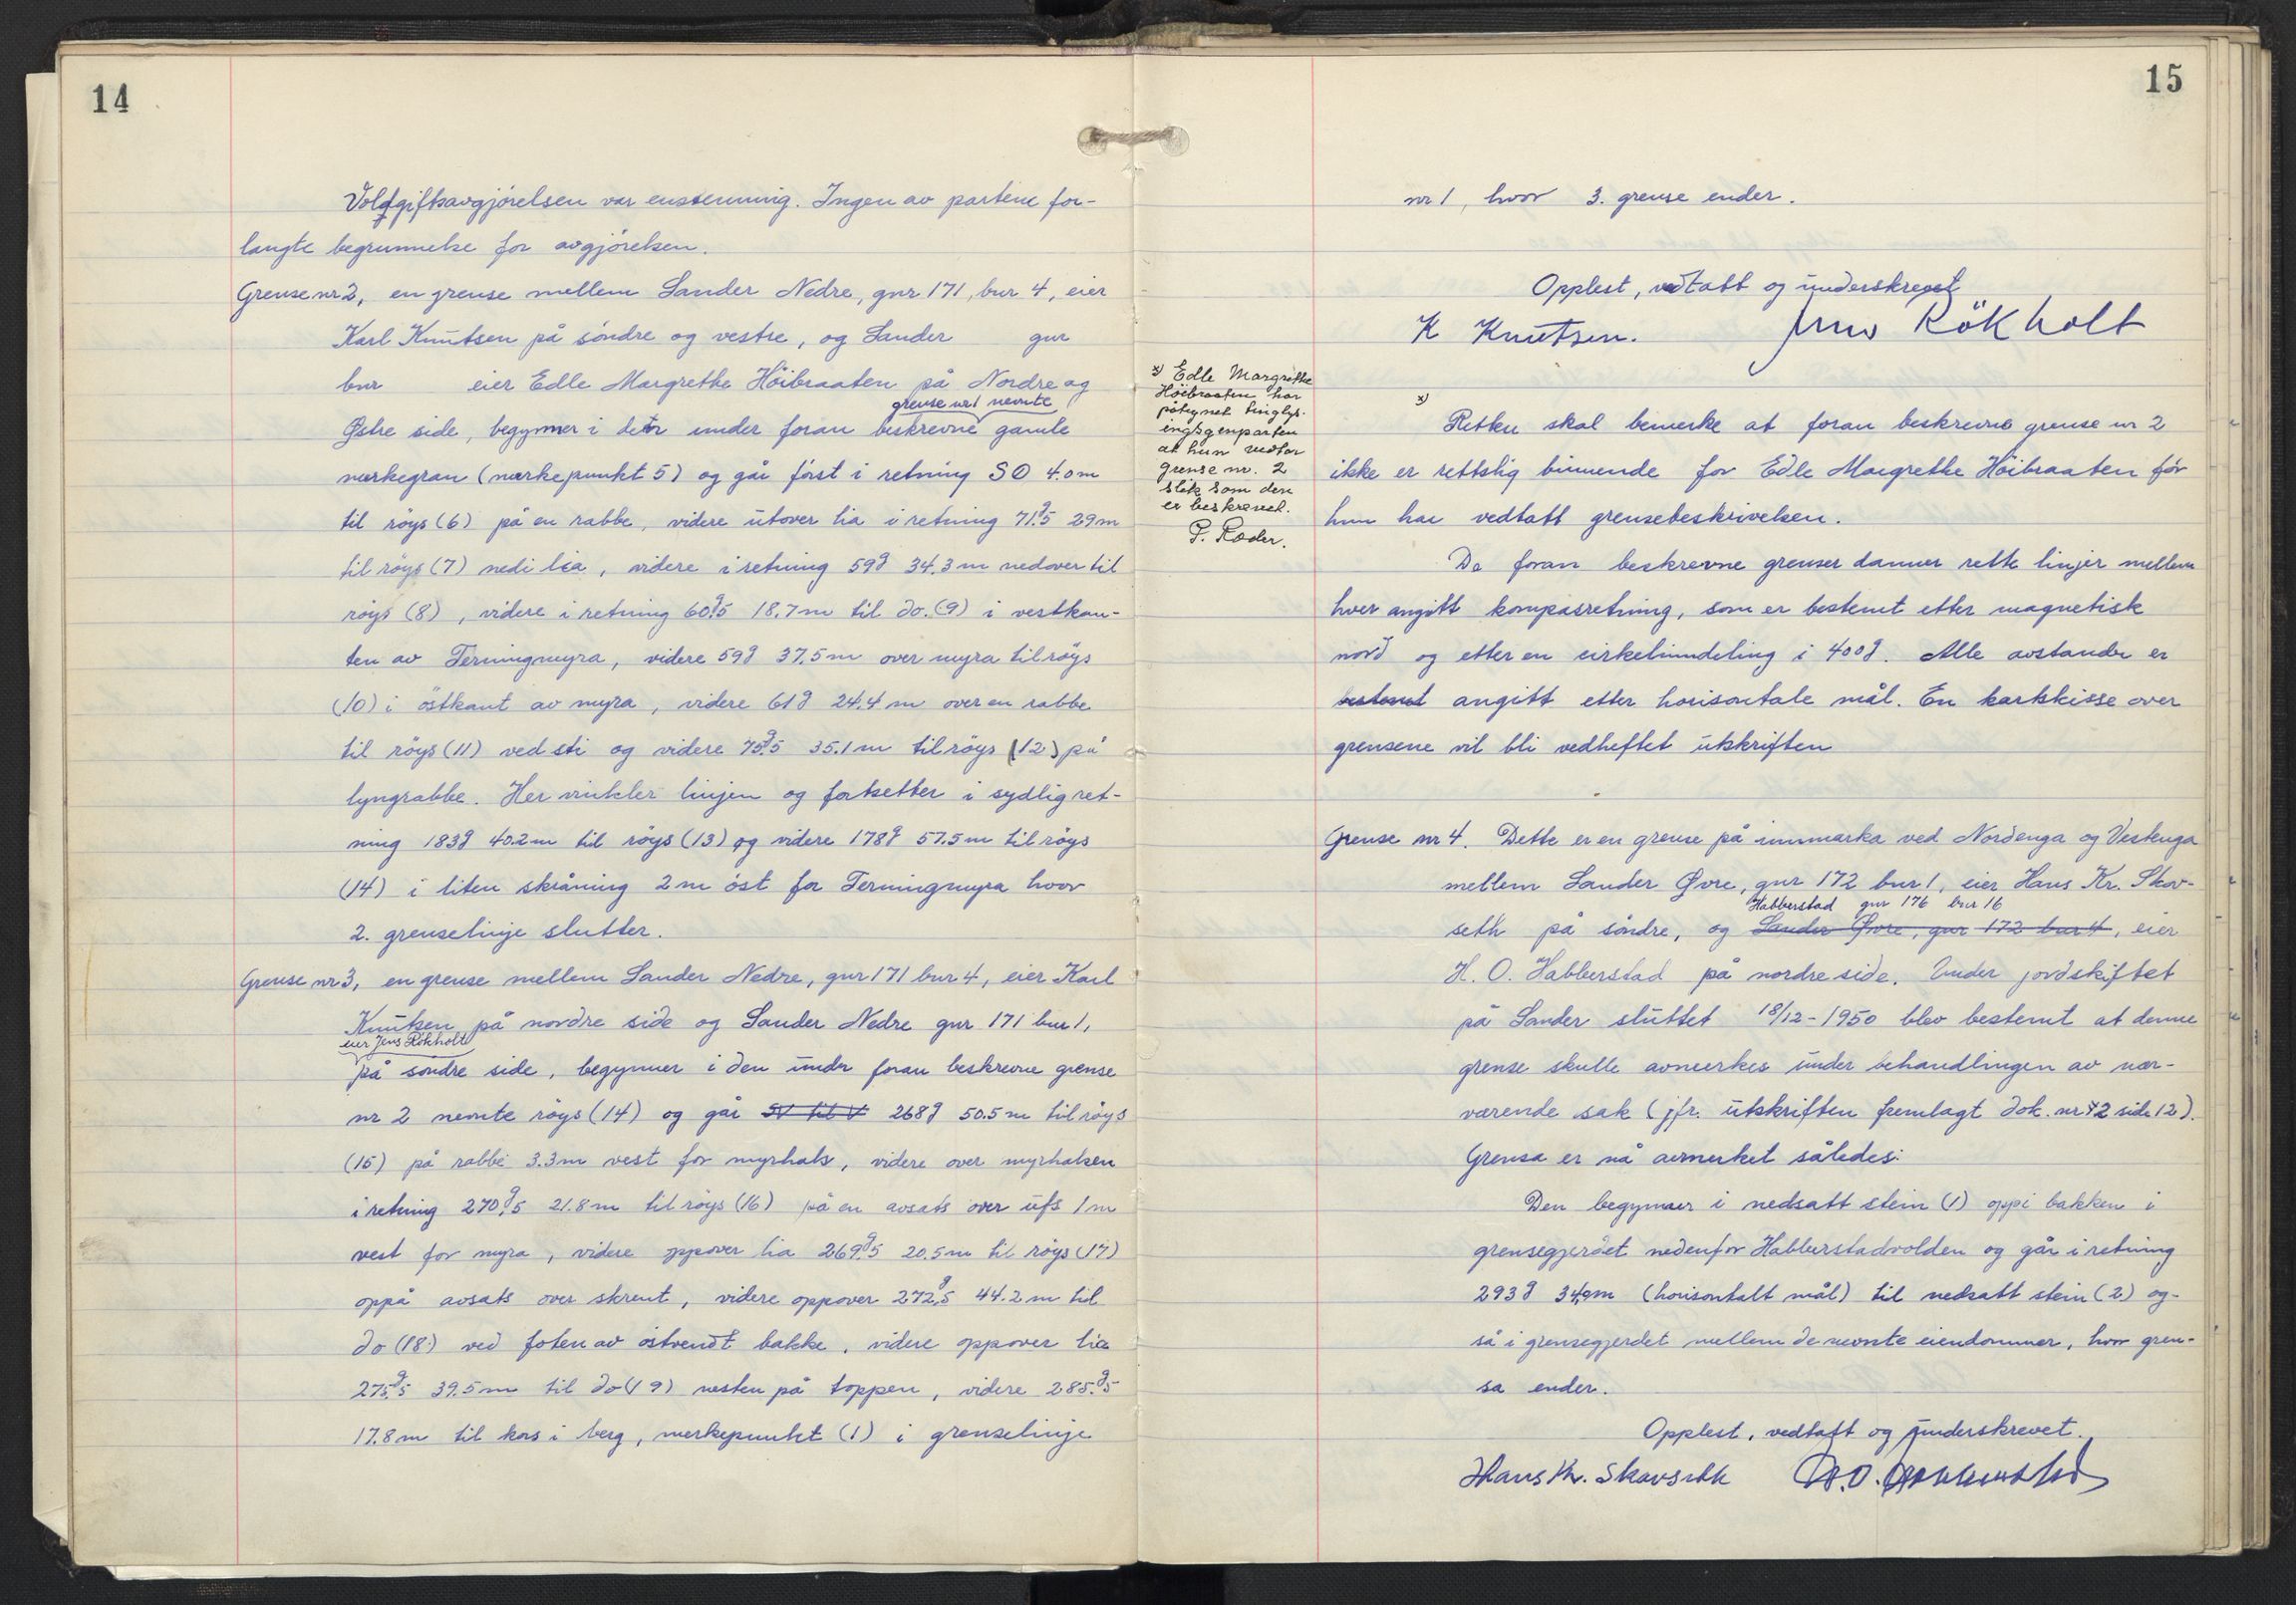 14
Voldgiftsavgjörelsen var enstemmig. Ingen av partene for-
langte begrunnelse for avgjörelsen.
Grense nr 2, en grense mellem Sander Nedre, gnr 171, bnr 4, eier
Karl Knutsen på söndre og vestre, og Sander gnr
bnr eier Edle Margrethe Höibraaten på Nordre og
grense nr 1 nevnte
Østre side, begynner i den under foran beskrevne gamle
merkegran (merkepunkt 5) og går først i retning SO 4.0m
til röys (6) på en rabbe, videre utover lia i retning 71.g5 29m
til röys (7) nedi lia, videre i retning 59g 34.3m nedover til
röys (8), videre i retning 60.g5 18.7m til do. (9) i vestkan-
ten av Terningmyra, videre 59g 37.5m over myra til röys
(10) i östkant av myra, videre 61g 24.4m over en rabbe
til röys (11) ved sti og videre 75.g5 35.1m til röys (12) på
lyngrabbe. Her vinkler linjen og fortsetter i sydlig ret-
ning 183g 40.2m til röys (13) og videre 178g 57.5m til röys
(14) i liten skråning 2m öst for Terningmyra hvor
2. grenselinje slutter.
Grense nr 3, en grense mellem Sander Nedre, gnr 171 bnr 4, eier Karl
Knutsen på nordre side og Sander Nedre gnr 171 bnr 1,
eier Jens Rökholt
på söndre side, begynner i den under foran beskrevne grense
nr 2 nevnte röys (14) og går SV til V 268g 50.5m til röys
(15) på rabbe 3.3m vest for myrhals, videre over myrhalsen
i retning 270.g5 21.8m til röys (16) på en avsats over ufs 1m
vest for myra, videre oppover lia 269.g5 20.5m til röys (17)
oppå avsats over skrent, videre oppover 272.g5 44.2m til
do (18) ved foten av östvendt bakke, videre oppover lia
275.g5 39.5m til do (19) nesten på toppen, videre 285.g5
17.8m til kors i berg, merkepunkt (1) i grenselinje
15
nr 1, hvor 3. grense ender.
Opplest, vedtatt og underskrevet
K Knutsen. Jens Rökholt
x) Edle Margrethe
Höibraaten har
påtegnet tinglys-
ingsgenparten
at hun vedtar
grense nr. 2
slik som den
er beskrevet.
P. Røder.
x)
Retten skal bemerke at foran beskrevne grense nr 2
ikke er rettslig binnende for Edle Margrethe Höibraaten för
hun har vedtatt grensebeskrivelsen.
De foran beskrevne grenser danner rette linjer mellem
hver angitt kompasretning, som er bestemt etter magnetisk
nord og etter en cirkelinndeling i 400g. Alle avstander er
bestemt angitt etter horisontale mål. En kartskisse over
grensene vil bli vedheftet utskriften
Grense nr 4. Dette er en grense på innmarka ved Nordenga og Vestenga
mellem Sander Øvre, gnr 172 bnr 1, eier Hans Kr. Skav-
Habberstad gnr 176 bnr 16
seth på söndre, og Sander Øvre, gnr 172 bnr 4, eier
H. O. Habberstad på nordre side. Under jordskiftet
på Sander sluttet 18/12-1950 blev bestemt at denne
grense skulle avmerkes under behandlingen av nær-
værende sak (jfr. utskriften fremlagt dok. nr 2 side 12).
Grensa er nå avmerket således:
Den begynner i nedsatt stein (1) oppi bakken i
grensegjerdet nedenfor Habberstadvolden og går i retning
293g 34,0m (horisontalt mål) til nedsatt stein (2) og-
så i grensegjerdet mellem de nevnte eiendommer, hvor gren-
sa ender.
Opplest, vedtatt og underskrevet.
Hans Kr. Skavseth H. O. Habberstad